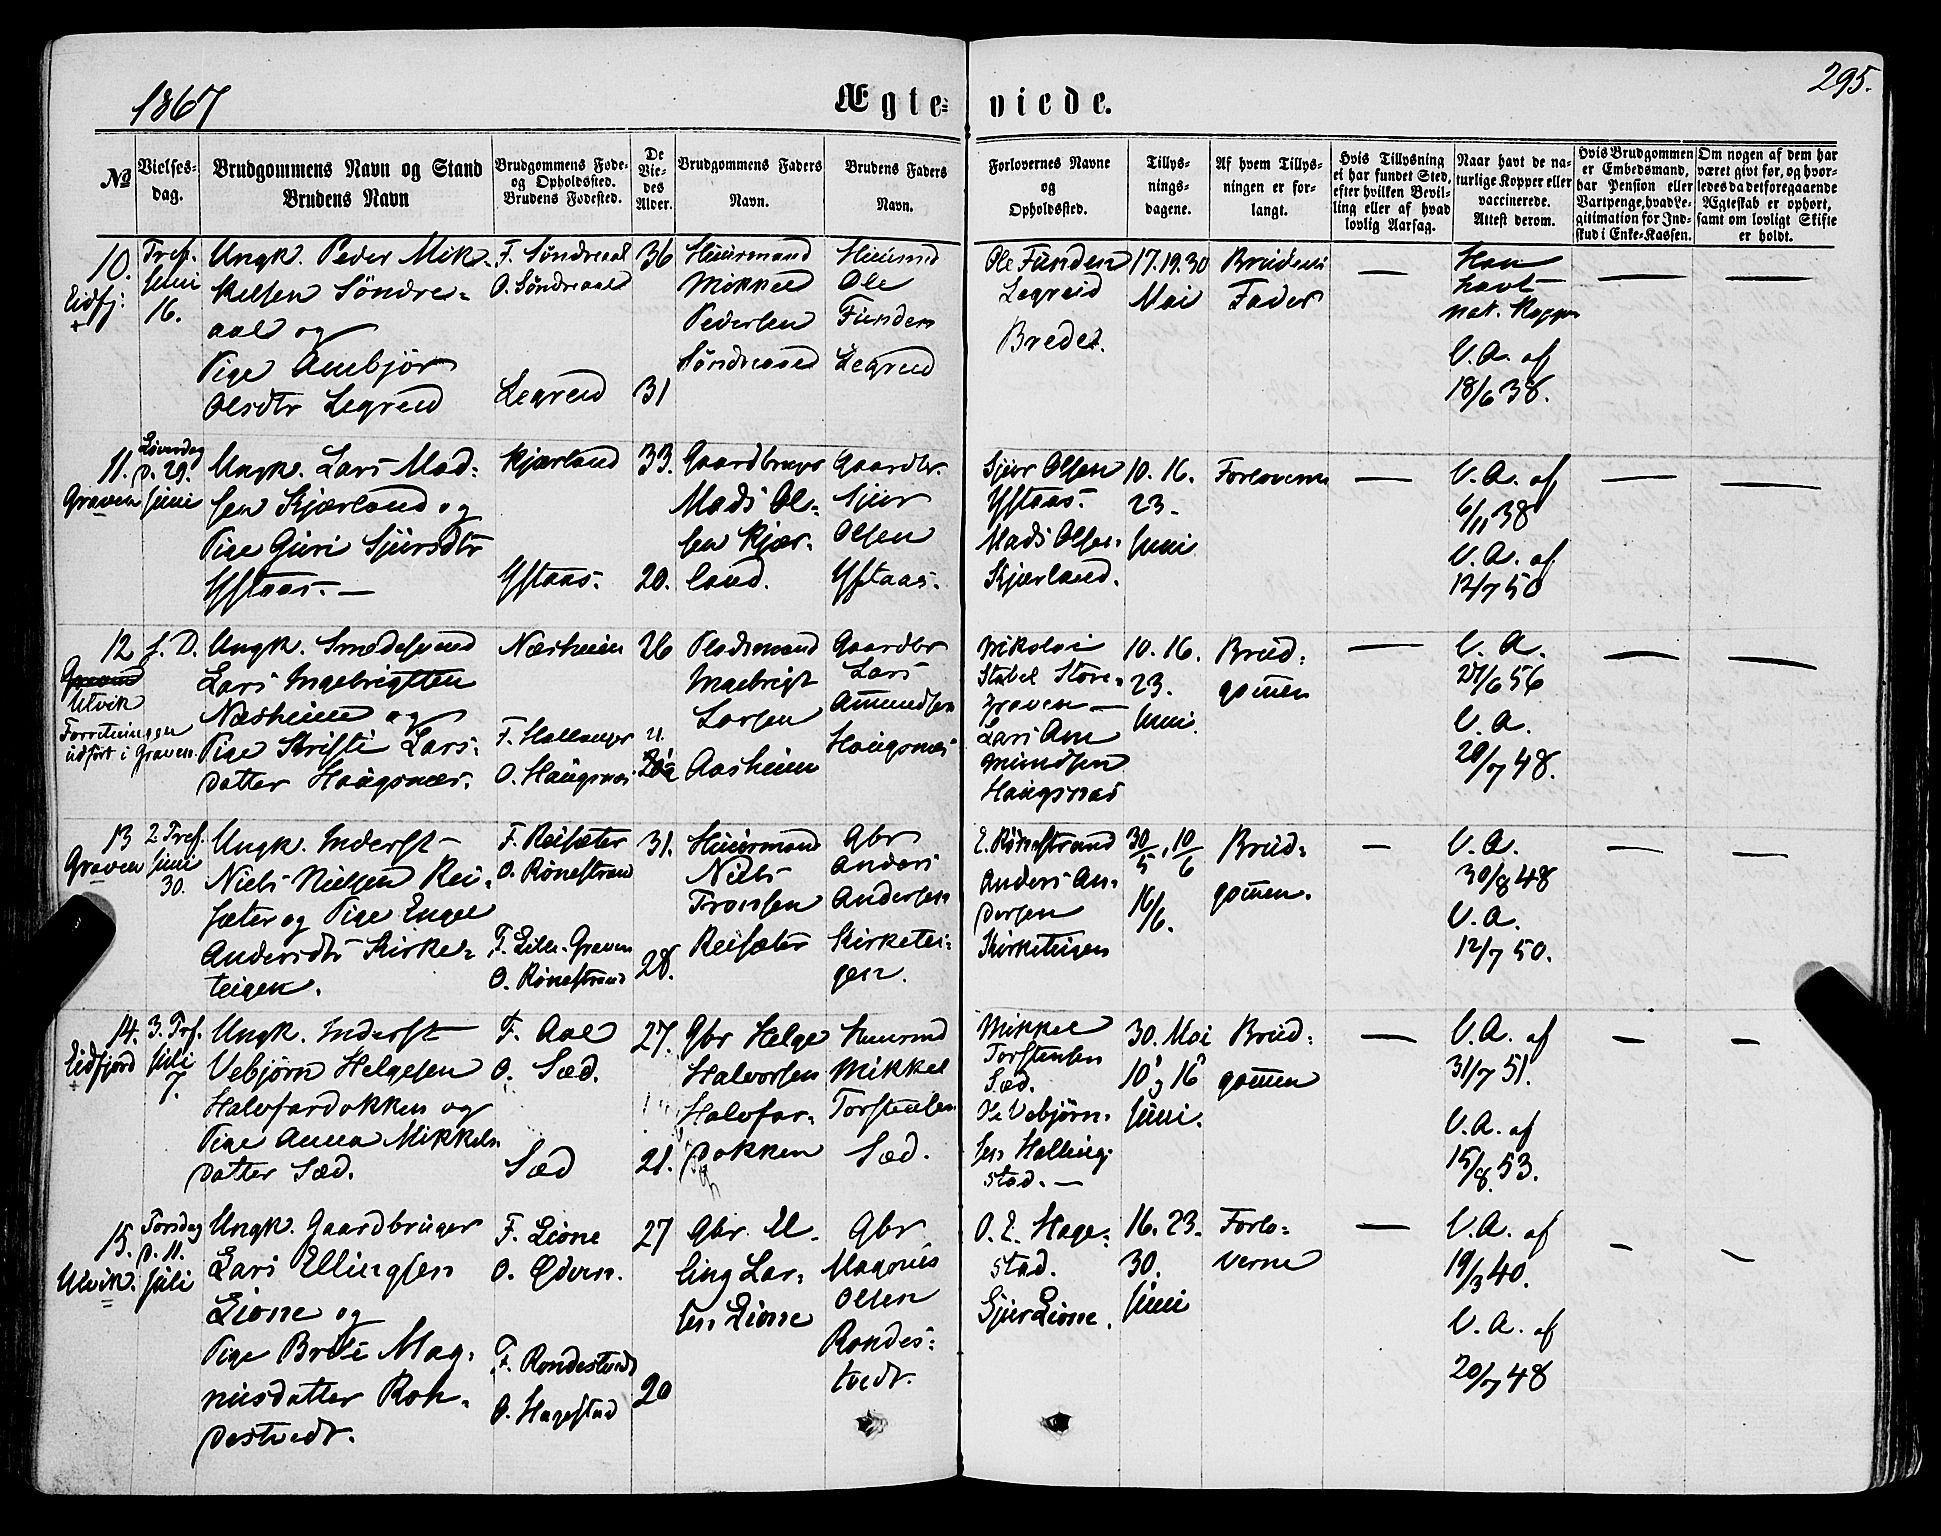 1867
Ægte= viede.
295.
No
Vielses-
dag.
Brudgommens Navn og Stand
Brudens Navn
Brudgommens Føde-
og Opholdssted.
Brudens Fødested.
De
Vie-
des
Alder.
Brudgommens Faders
Navn.
Brudens Faders
Navn.
Forlovernes Navne
og
Opholdssted.
Tillys-
nings-
dagene.
Af hvem Tillys-
ningen er for-
langt.
Hvis Tillysning
ei har fundet Sted,
efter hvilken Bevil-
ling eller af hvad
lovlig Aarsag.
Naar havt de na-
turlige Kopper eller
vaccinerede.
Attest derom.
Hvis Brudgommen
er Embedsmand,
har Pension eller
Vartpenge, hvad Le-
gitimation for Ind-
skud i Enke-Kassen.
Om nogen af dem har
været givt før, og hvor-
ledes da det foregaaende
Ægteskab er ophørt,
samt om lovligt Skifte
er holdt.
10.
Eidfj:
+
Tref.
Juni
16.
Ungk. Peder Mik-
kelsen Søndre-
aal og
Pige Anbjør
Olsdtr Legreid
F. Søndreaal
O. Søndreaal
Legreid
36
31
Huusmand
Mikkel
Pedersen
Søndreaal
Huusmd
Ole
Funden
Legreid
Ole Funden
Legreid
17. 19. 30
Mai
Brudens
Fader
—
Han
havt
nat. Kopper
V. A. af
18/6 38.
—
—
11.
Graven
Løverdag
d. 29.
Juni
Ungk. Lars Mad-
sen Kjærland og
Pige Guri Sjursdtr
Ystaas. —
Kjærland
Ystaas.
33.
20.
Gaardbruger
Mads Ol-
sen Kjær-
land.
Gaardbr.
Sjur
Olsen
Ystaas.
Sjur Olsen
Ystaas.
Mads Olsen
Kjærland.
10. 16.
23.
Juni
Forloverne
—
V. A. af
6/11 38
V. A. af
12/7 50
—
—
12
Ulvik
Forretningen
udført i Graven.
s. D.
Ungk. Smedesvend
Lars Ingebrigtsen
Næsheim og
Pige Kristi Lars-
datter Haugsnær.
Næsheim
O. Haugsnæs
26
21.
Pladsmand
Ingebrigt
Larsen
Aasheim
Gaardbr
Lars
Amundsen
Haugsnæs
Nikolai
Stabel Store-
graven —
Lars Am
mundsen
Haugsnæs
10. 16.
23.
Juni.
Brud-
gommen
—
V. A.
27/6 56
V. A.
20/7 48.
—
—
13
Graven
2. Tref.
Juni
30.
Ungk. Inderst
Niels Nielsen Rei-
sæter og Pige Engel
Andersdtr Kirke-
teigen.
F. Reisæter
O. Rønestrand
F. Lille-Graven
O. Rønestrand
31.
28.
Huusmand
Niels
Tronsen
Reisæter
Gbr
Anders
Andersen
Kirketei-
gen.
E. Rønestrand
Anders An-
dersen
Kirketeigen
30/5, 10/6
16/6.
Brud-
gommen.
—
V. A.
30/8 48
V. A.
12/7 50.
—
—
14.
Eidfjord
+
3. Trf.
Juli
7.
Ungk. Inderst
Vebjørn Helgesen
Halvfardokken og
Pige Anna Mikkels-
datter Sæd.
F. Aal
O. Sæd.
Sæd
27.
21.
Gbr Helge
Halvorsen
Halvfar-
dokken
Huusmd
Mikkel
Torstensen
Sæd.
Mikkel
Torstensen
Sæd.
Ole Vebjørn-
sen Halling-
stad. —
30. Mai
10, 16
Juni.
Brud-
gommen
—
V. A. af
31/7 51.
V. A. af
15/8 53.
—
—
15.
Ulvik.
Torsdag
d. 11.
Juli
Ungk. Gaardbruger
Lars Ellingsen
Lione og
Pige Brite Mag-
nusdatter Ron-
destvedt.
F. Lione
O. Qdven.
F. Rondestvedt
O. Hagestad
27
20
Gbr. El-
ling Lar-
sen Lione
Gbr
Magnus
Olsen
Rondes-
tvedt.
O. E. Hage-
stad.
Sjur Lione.
16. 23.
30.
Juni
Forlo-
verne
—
V. A. af
19/3 40.
V. A. af
20/7 48
—
—